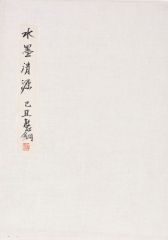 水墨清源 己丑